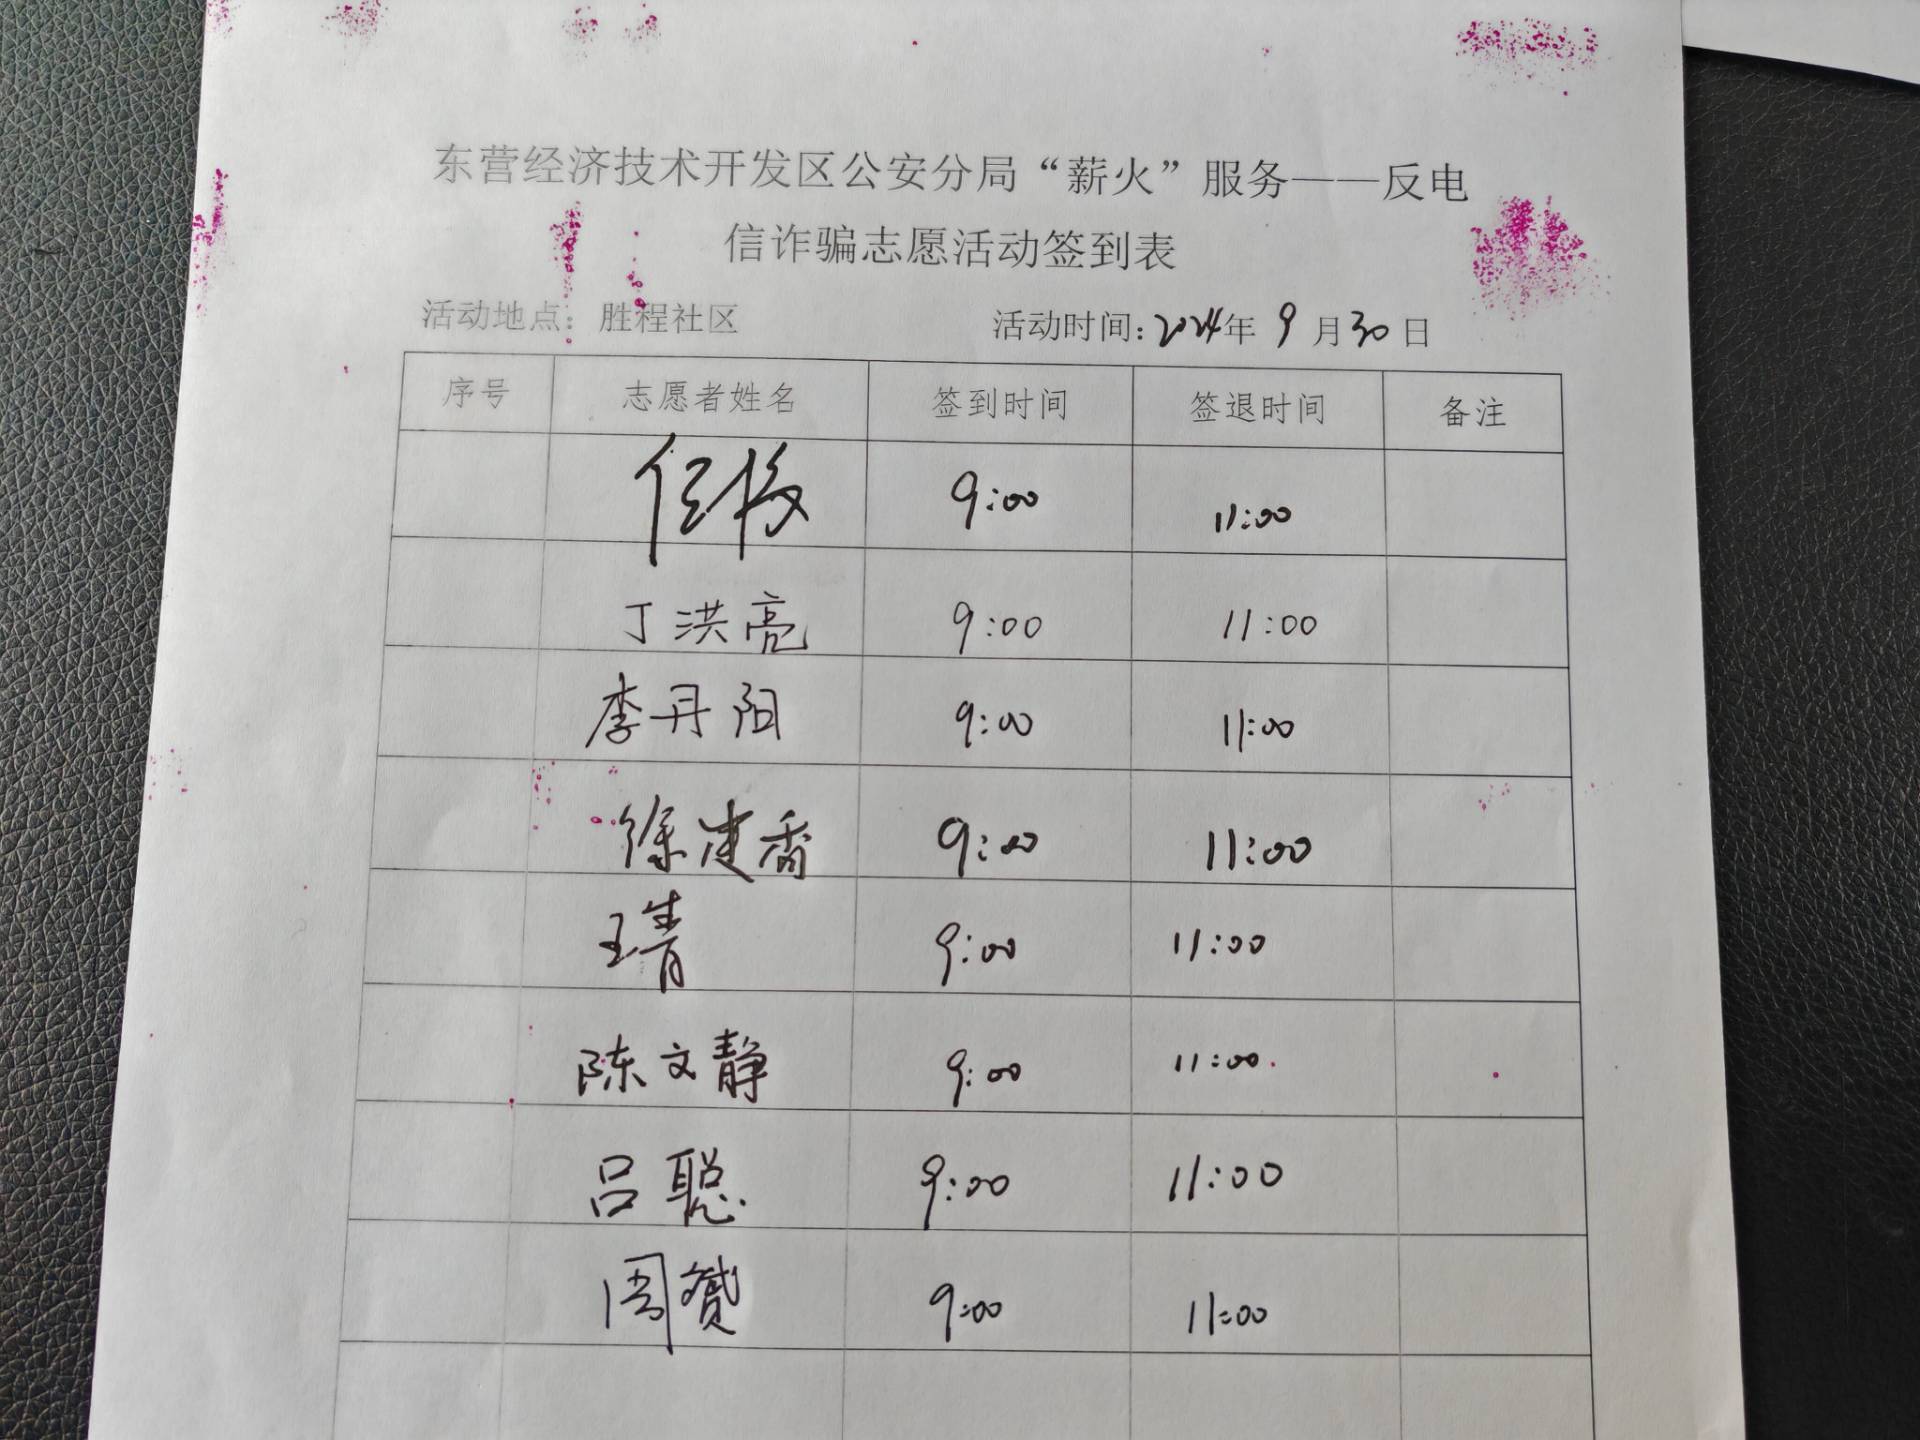 东营经济技术开发区公安分局“薪火”服务——反电
信诈骗志愿活动签到表
活动地点：胜程社区 活动时间：2024年 9月30日
序号 志愿者姓名 签到时间 签退时间 备注
9:00 11:00
丁洪亮 9:00 11:00
李丹阳 9:00 11:00
徐建香 9:00 11:00
王青 9:00 11:00
陈文静 9:00 11:00
吕聪 9:00 11:00
周赟 9:00 11:00